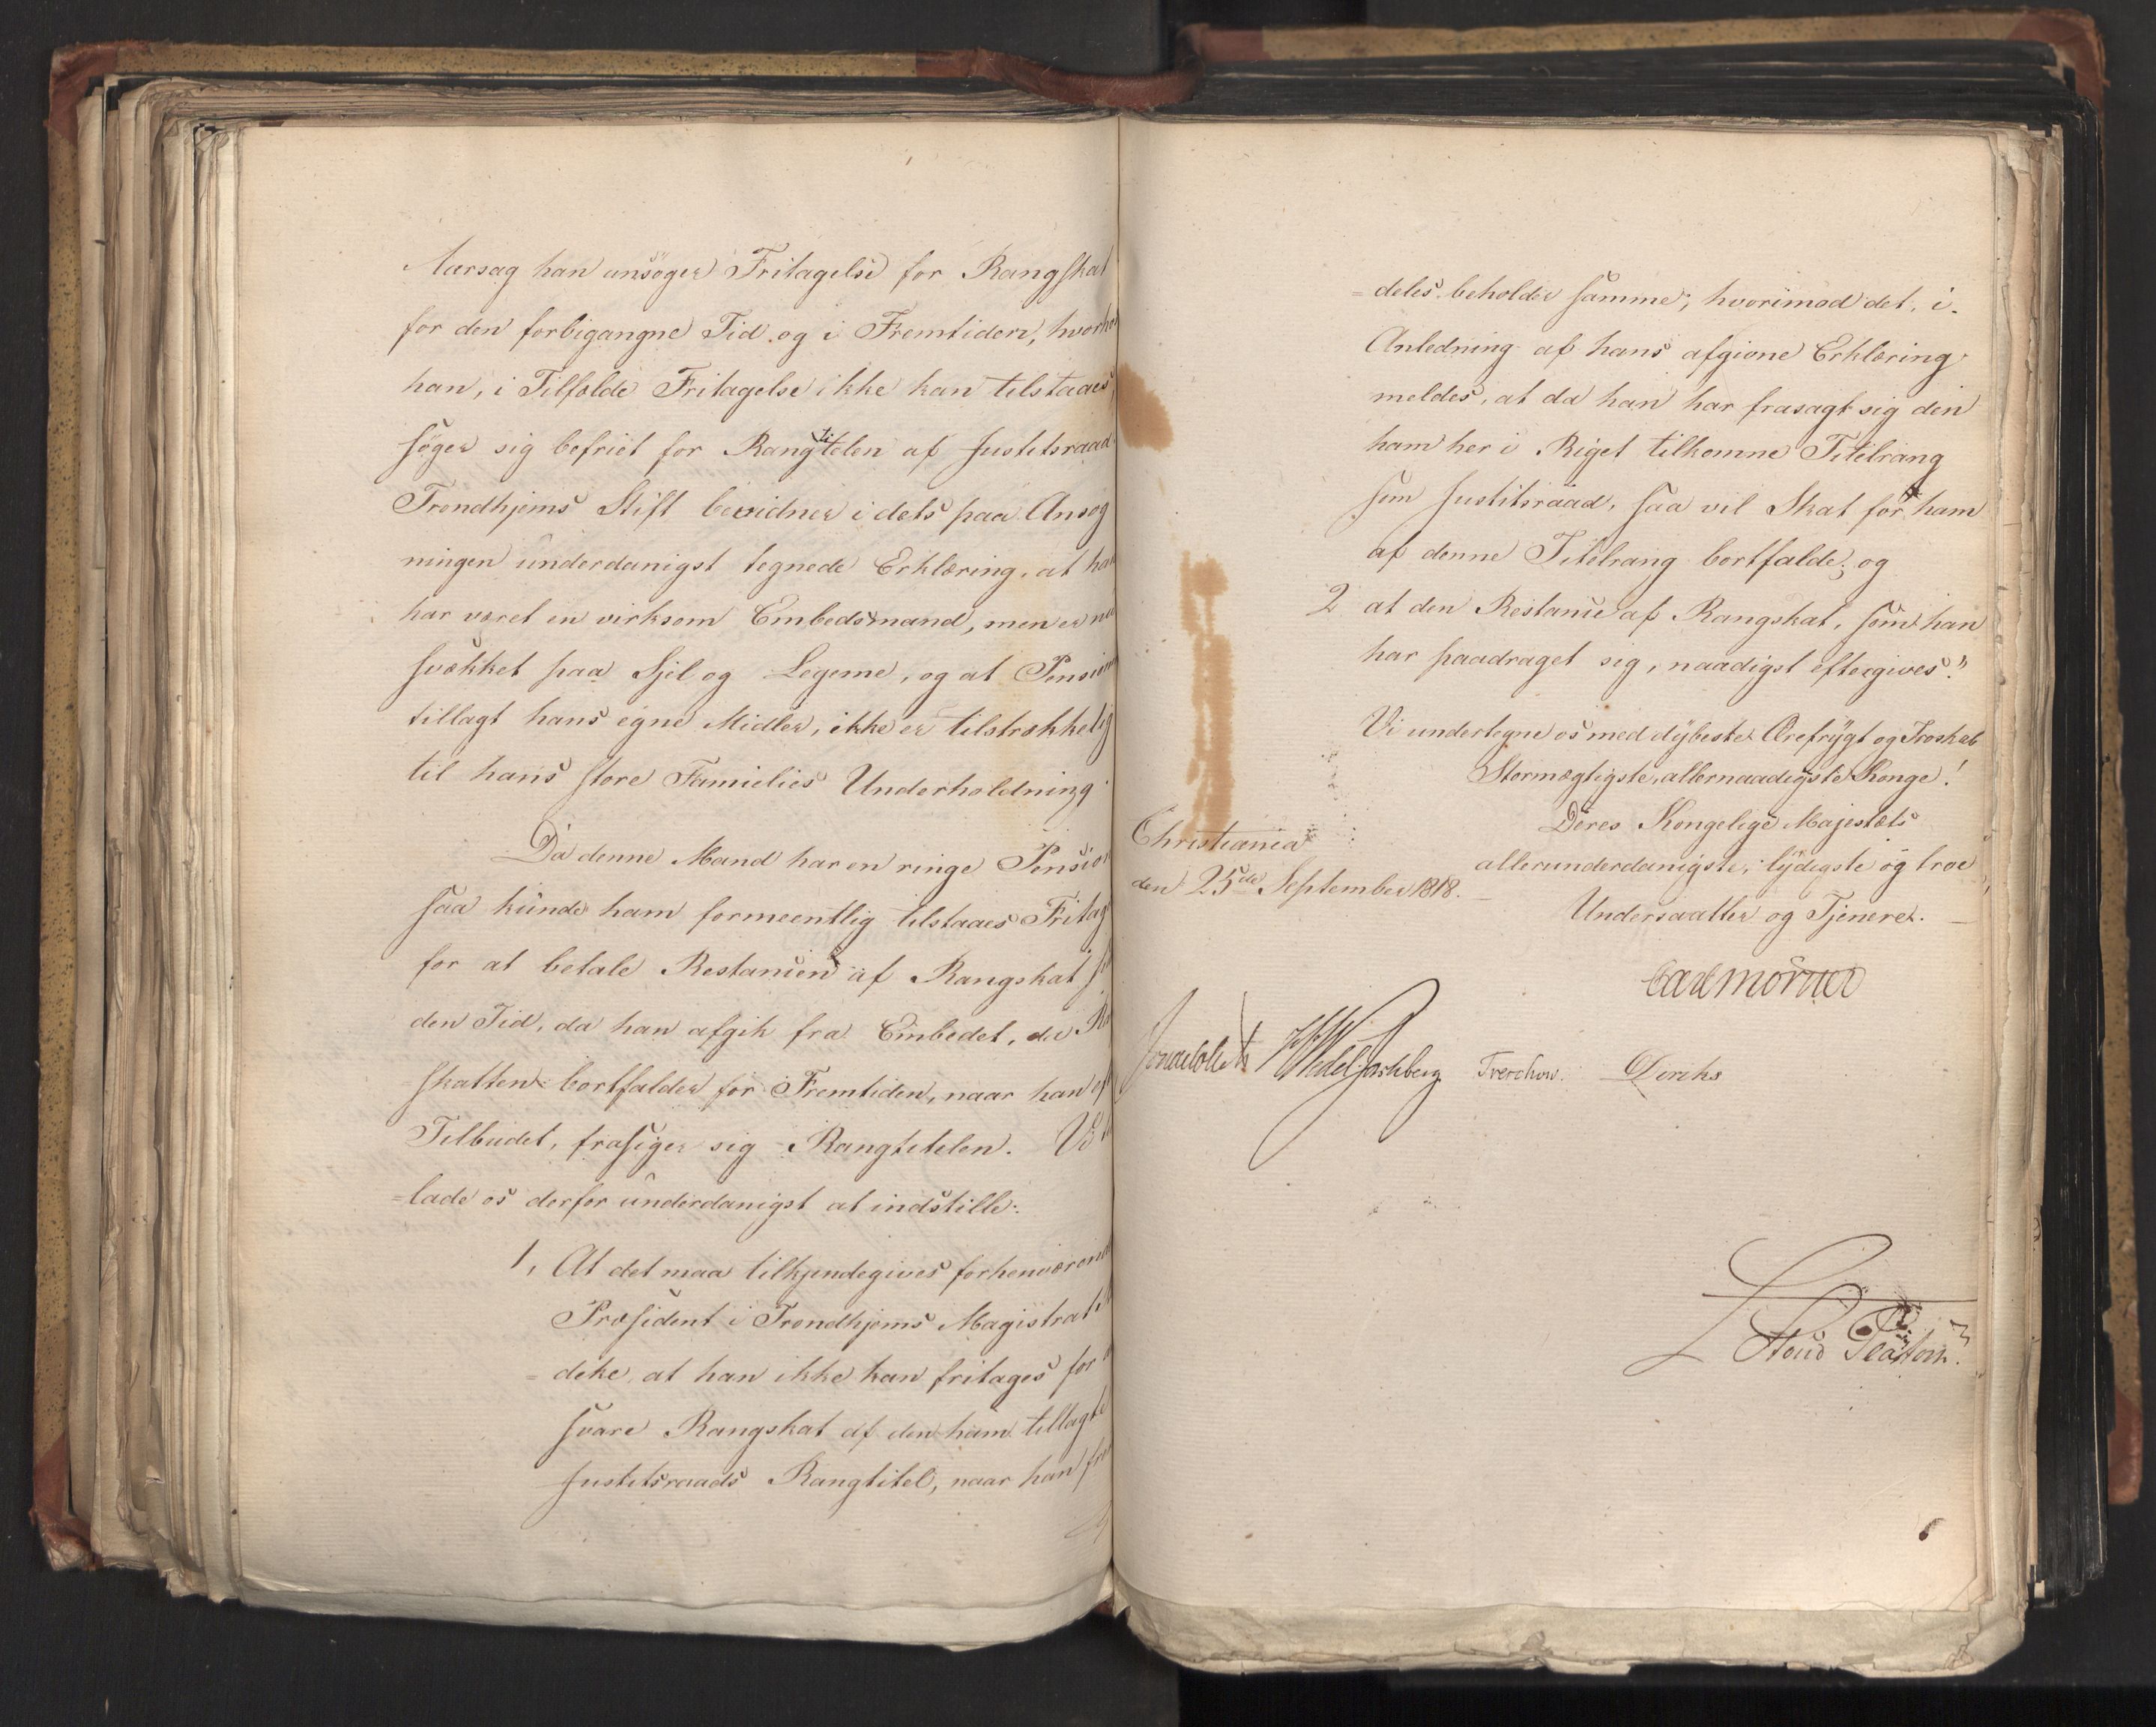 Aarsag han ansøger Fritagelse for Rangskat
for den forbigangne Tid og i Fremtiden, hvorhos
han, i Tilfælde Fritagelse ikke kan tilstaaes,
søger sig befriet for Rangtitelen af Justitsraad.
Trondhjems Stift bevidner i dets paa Ansøg
ningen underdanigst tegnede Erklæring, at han
har været en virksom Embedsmand, men er nu
svækket paa Sjel og Legeme, og at Pensionen
tillagt hans egne Midler, ikke er tilstrækkelig
til hans store Families Underholdning.
Da denne Mand har en ringe Pension
saa kunde ham formeentlig tilstaaes Fritag
for at betale Restancen af Rangskat
den Tid, da han afgik fra Embedet, da
skatten bortfalder for Fremtiden, naar han
Tilbudet, frasiger sig Rangtitelen. Vi
=lade os derfor underdanigst at indstille:
1, At det maa tilkjendegives forhenværende
Præsident i Trondhjems Magistrat
=deke, at han ikke kan fritages for
svare Rangskat af den ham tillagte
Justitsraads Rangtitel, naar han
=deles beholder samme; hvorimod det, i
Anledning af hans afgivne Erklæring
meldes, at da han har frasagt sig den
ham her i Riget tilkomne Titelrang
som Justitsraad, saa vil Skat for ham
af denne Titelrang bortfalde; og
2 at den Restance af Rangskat, som han
har paadraget sig, naadigst eftergives."
Vi undertegne os med dybeste Ærefrygt og Troskab
Stormægtigste, allernaadigste Konge!
Deres Kongelige Majestæts
allerunderdanigste, lydigste og troe
Undersaatter og Tjenere.
Christiania
den 25de September 1818.
Carl Mörner
Jonas Collett HWedel Jarlsberg Treschow. Diriks